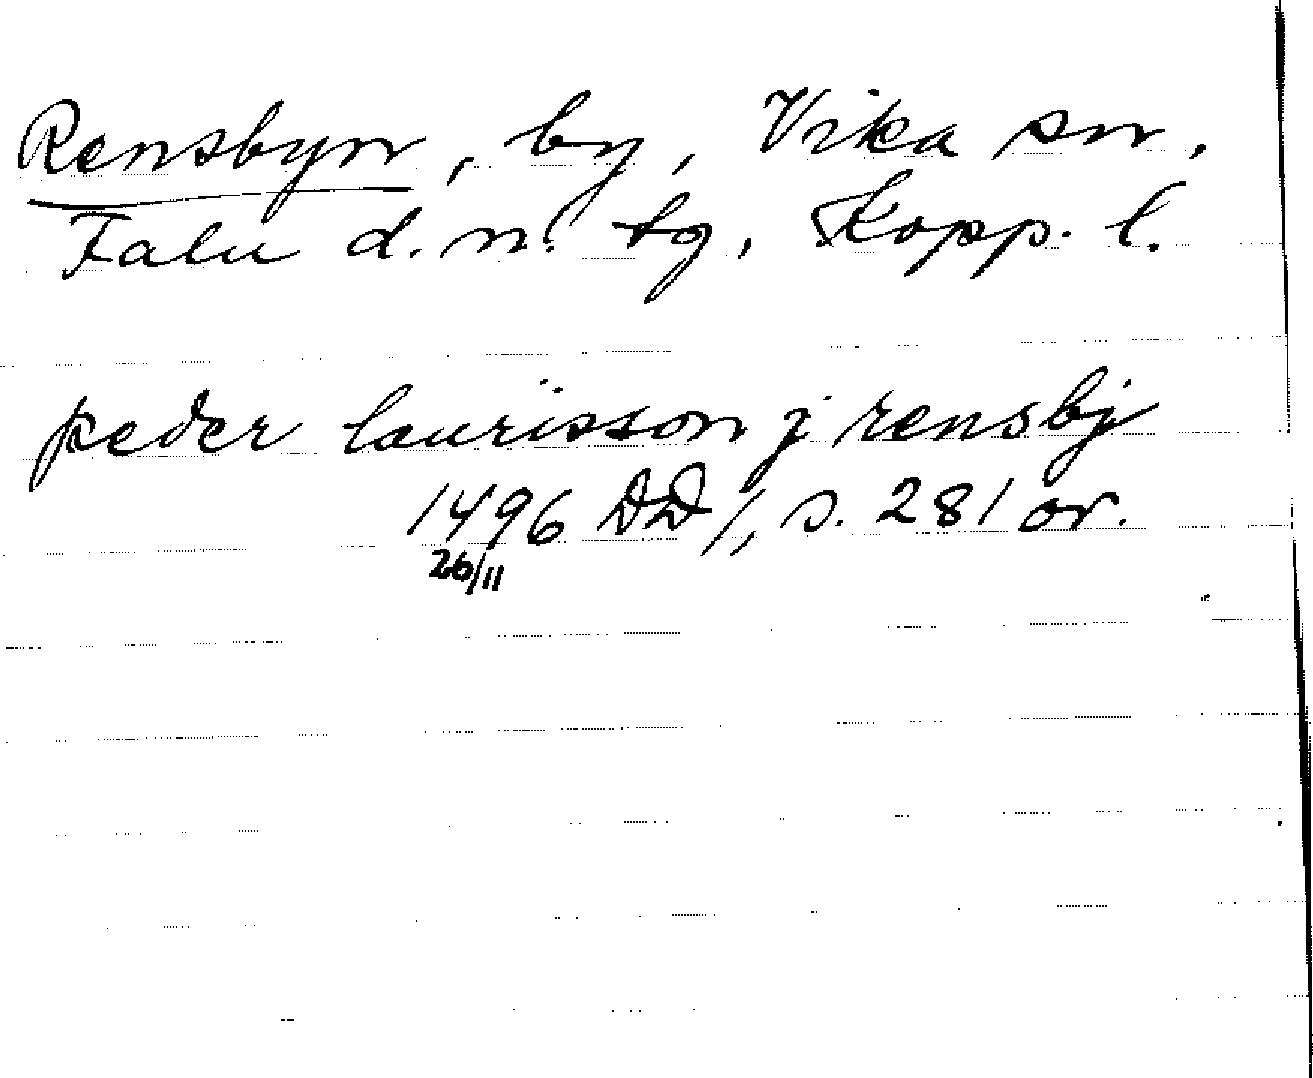 Rensbyn, by, Vika sn,
Falu d. n. tg, Kopp. l.
peder laurisson j rensbj
1496 DD 1, s. 281 or.
26/11